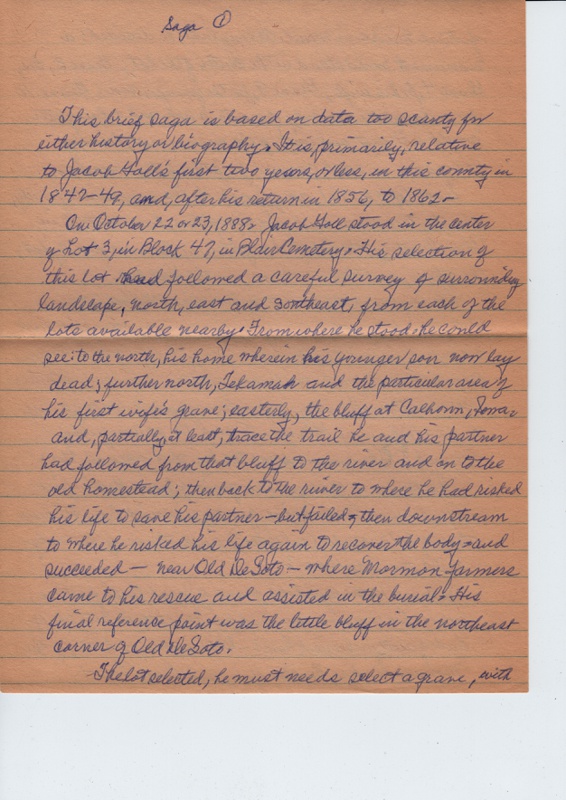 Saga 1
This brief saga is based on data too scanty for
either history or biography. It is, primarily, relative
to Jacob Goll's first two years, or less, in this county in
1847-49, and, after his return in 1856, to 1862.
On October 22 or 23, 1888, Jacob Goll stood in the center
of Lot 3, in Block 47, in Blair Cemetery. His selection of
this lot had followed a careful survey of surrounding
landscape, north, east and southeast, from each of the
lots available nearby. From where he stood he could
see: to the north, his home wherein his younger son now lay
dead; further north, Tekamah and the particular area of
his first wife's grave; easterly, the bluff at Calhoun, Iowa.
and, partially, at least, trace the trail he and his partner
had followed from that bluff to the river and on to the
old homestead; then back to the river to where he had risked
his life to save his partner - but failed, then downstream
to where he risked his life again to recover the body - and
succeeded - near Old DeSoto - where Mormon farmers
came to his rescue and assisted in the burial. His
final reference point was the little bluff in the northeast
corner of Old DeSoto.
The lot selected, he must needs select a grave, with